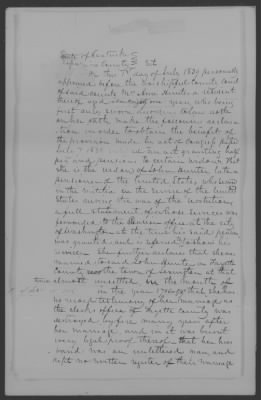 State of Kentucky
Jefferson County Sct.
On this 1st day of July 1839 personally
appeared before the County Court
of said county Mrs Ann Hunter a resident
thereof aged years who being
first duly sworn according to law doth
on her oath make the following declara
tion in order to obtain the benefit of
the provision made by act of Congress passed
July 7 1838 an act granting half
pay and pensions to certain widows that
she is the widow of John Hunter, late a
pensioner of the United States, who served
in the militia in the service of the United
States during the war of the revolution
a full statement of whose services was
forwarded to the pension office at the city
of Washington at the time his said pension
was granted and is referred to to show his
services. She further declares that she was
married to said John Hunter in Fayette
County near the town of Lexington at that
time almost unsettled in the month of
in the year 178 that she has
no record testimony of her marriage as
the clerks office of Fayette county was
destroyed by fire many years after
her marriage and in it was burnt
every legal proof thereof that her hus
band was an unlettered man and
kept no written register of their marriage